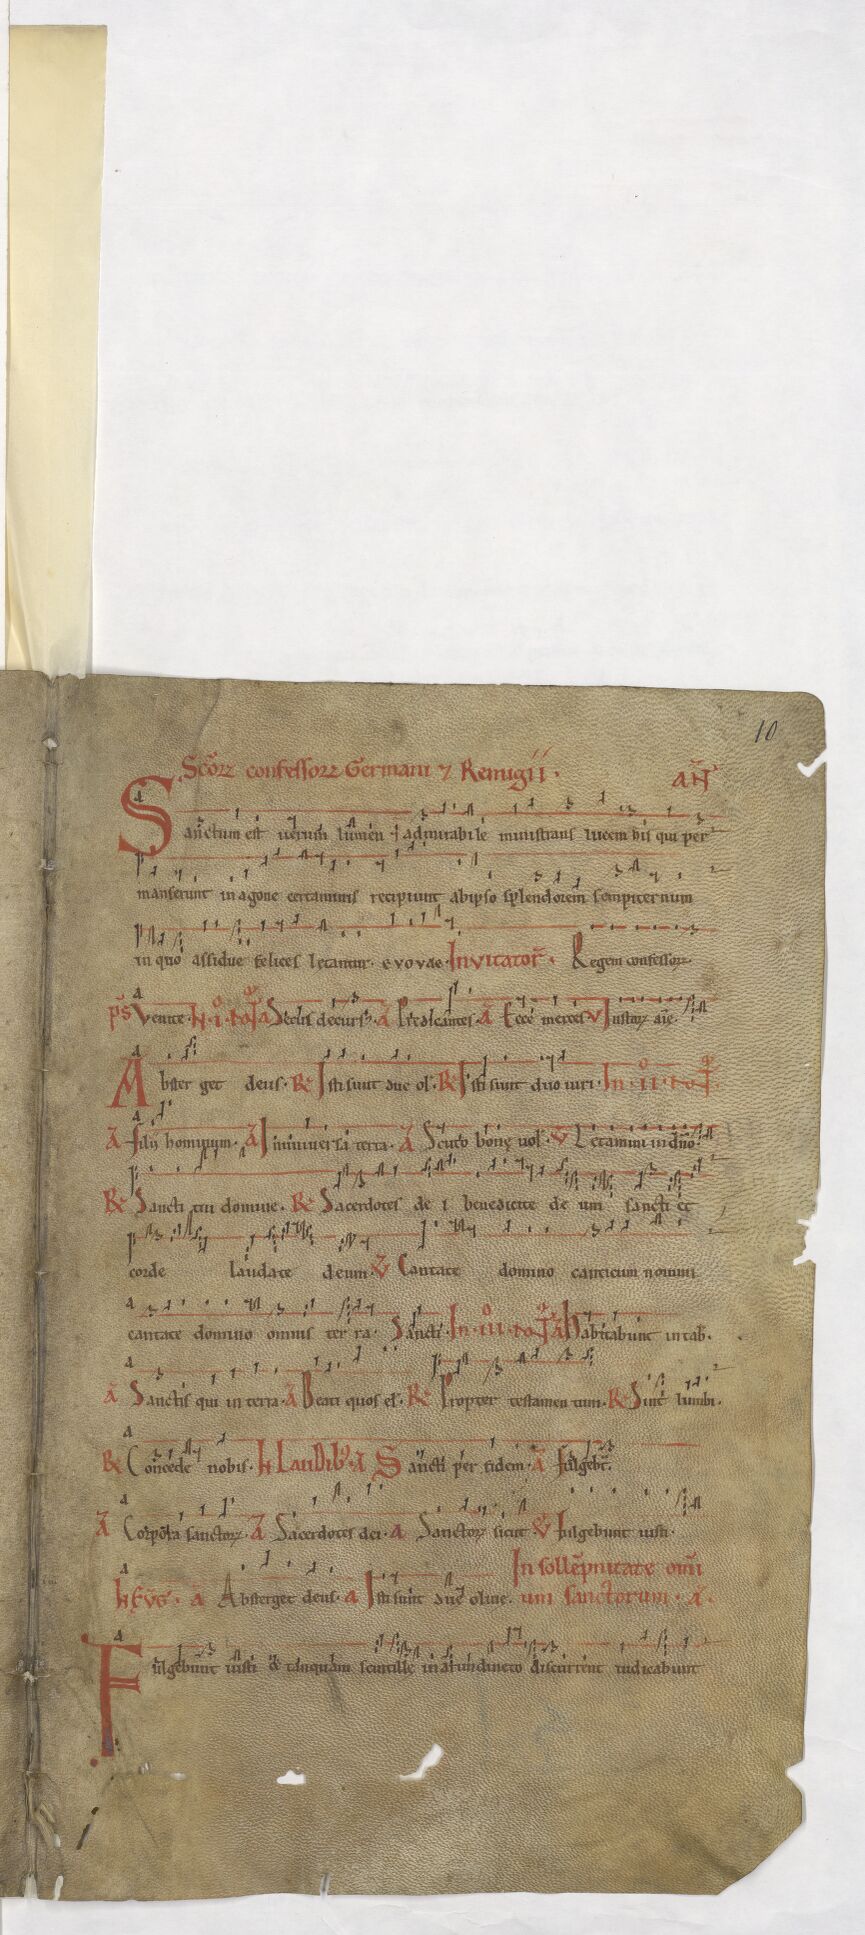 10
Scōꝝ confessoꝝ Germani ⁊ Remigii. aN̄
Sanctum est uerum lumen ⁊ admirabile ministrans lucem his qui per
manserunt in agone certaminis recipiunt ab ipso splendorem sempiternum
in quo assidue felices letantur. evovae. Invitator̄. Regem confessoꝝ.
ps̄ Venite. ā Seclis decurs. ā P̄dicantes. ā Ecce merces V Iustoꝝ aīe.
Absterget deus. R̄ Isti sunt due ol. R̄ Isti sunt duo uiri. In .ii. no
ā Filii hominum. ā In uniuersa terra. ā Scuto bonę uol. V Letamini in dn̄o.
R̄ Sancti tui domine. R̄ Sacerdotes de i benedicite de um sancti et
corde laudate deum. V Cantate domino canticum nouum
cantate domino omnis ter ra. Sancti. In .iii. no ā Habitabunt in tab̄.
ā Sanctis qui in terra. ā Beati quos el. R̄ Propter testamen tum. R̄ Sint lumbi.
R̄ Concede nobis. IN LauDib; ā Sancti per fidem. ā Fulgebt̄.
ā Corpora sanctoꝝ. ā Sacerdotes dei. a Sanctoꝝ sicut V Fulgebunt iusti.
In sollēpnitate omni
IN EVḠ. ā Absterget deus. a Isti sunt due oliue. um sanctorum. ā.
Fulgebunt iusti & tanquam scintille in arundineto discurrent iudicabunt